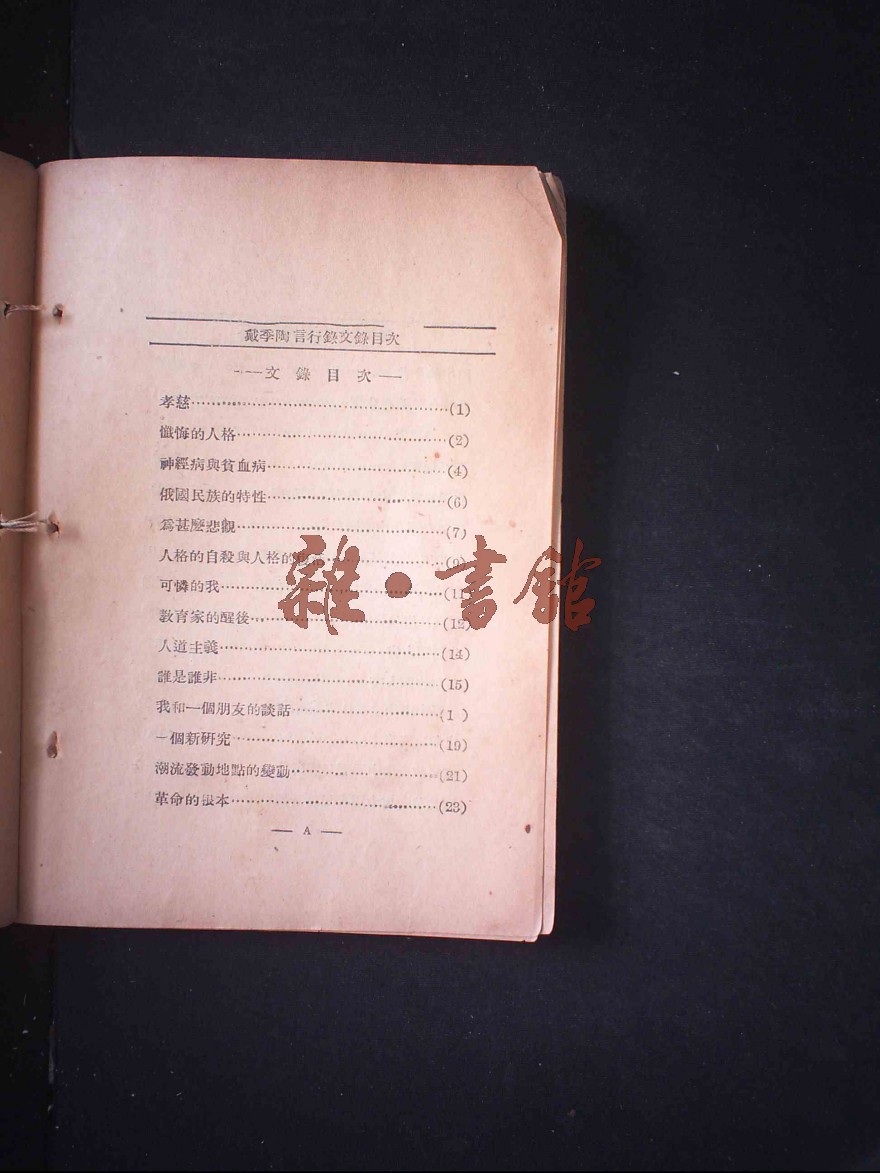 戴季陶言行錄文錄目次
——文錄目次——
孝慈……(1)
懺悔的人格……(2)
神經病與貧血病……(4)
俄國民族的特性……(6)
爲甚麽悲觀……(7)
人格的自殺與人格的……(9)
可憐的我……(11
敎育家的醒後……(12)
人道主義……(14)
誰是誰非……(15)
我和一個朋友的談話……(1 )
一個新研究……(19)
潮流發動地點的變動……(21)
革命的根本……(23)
— A —
雜·書館